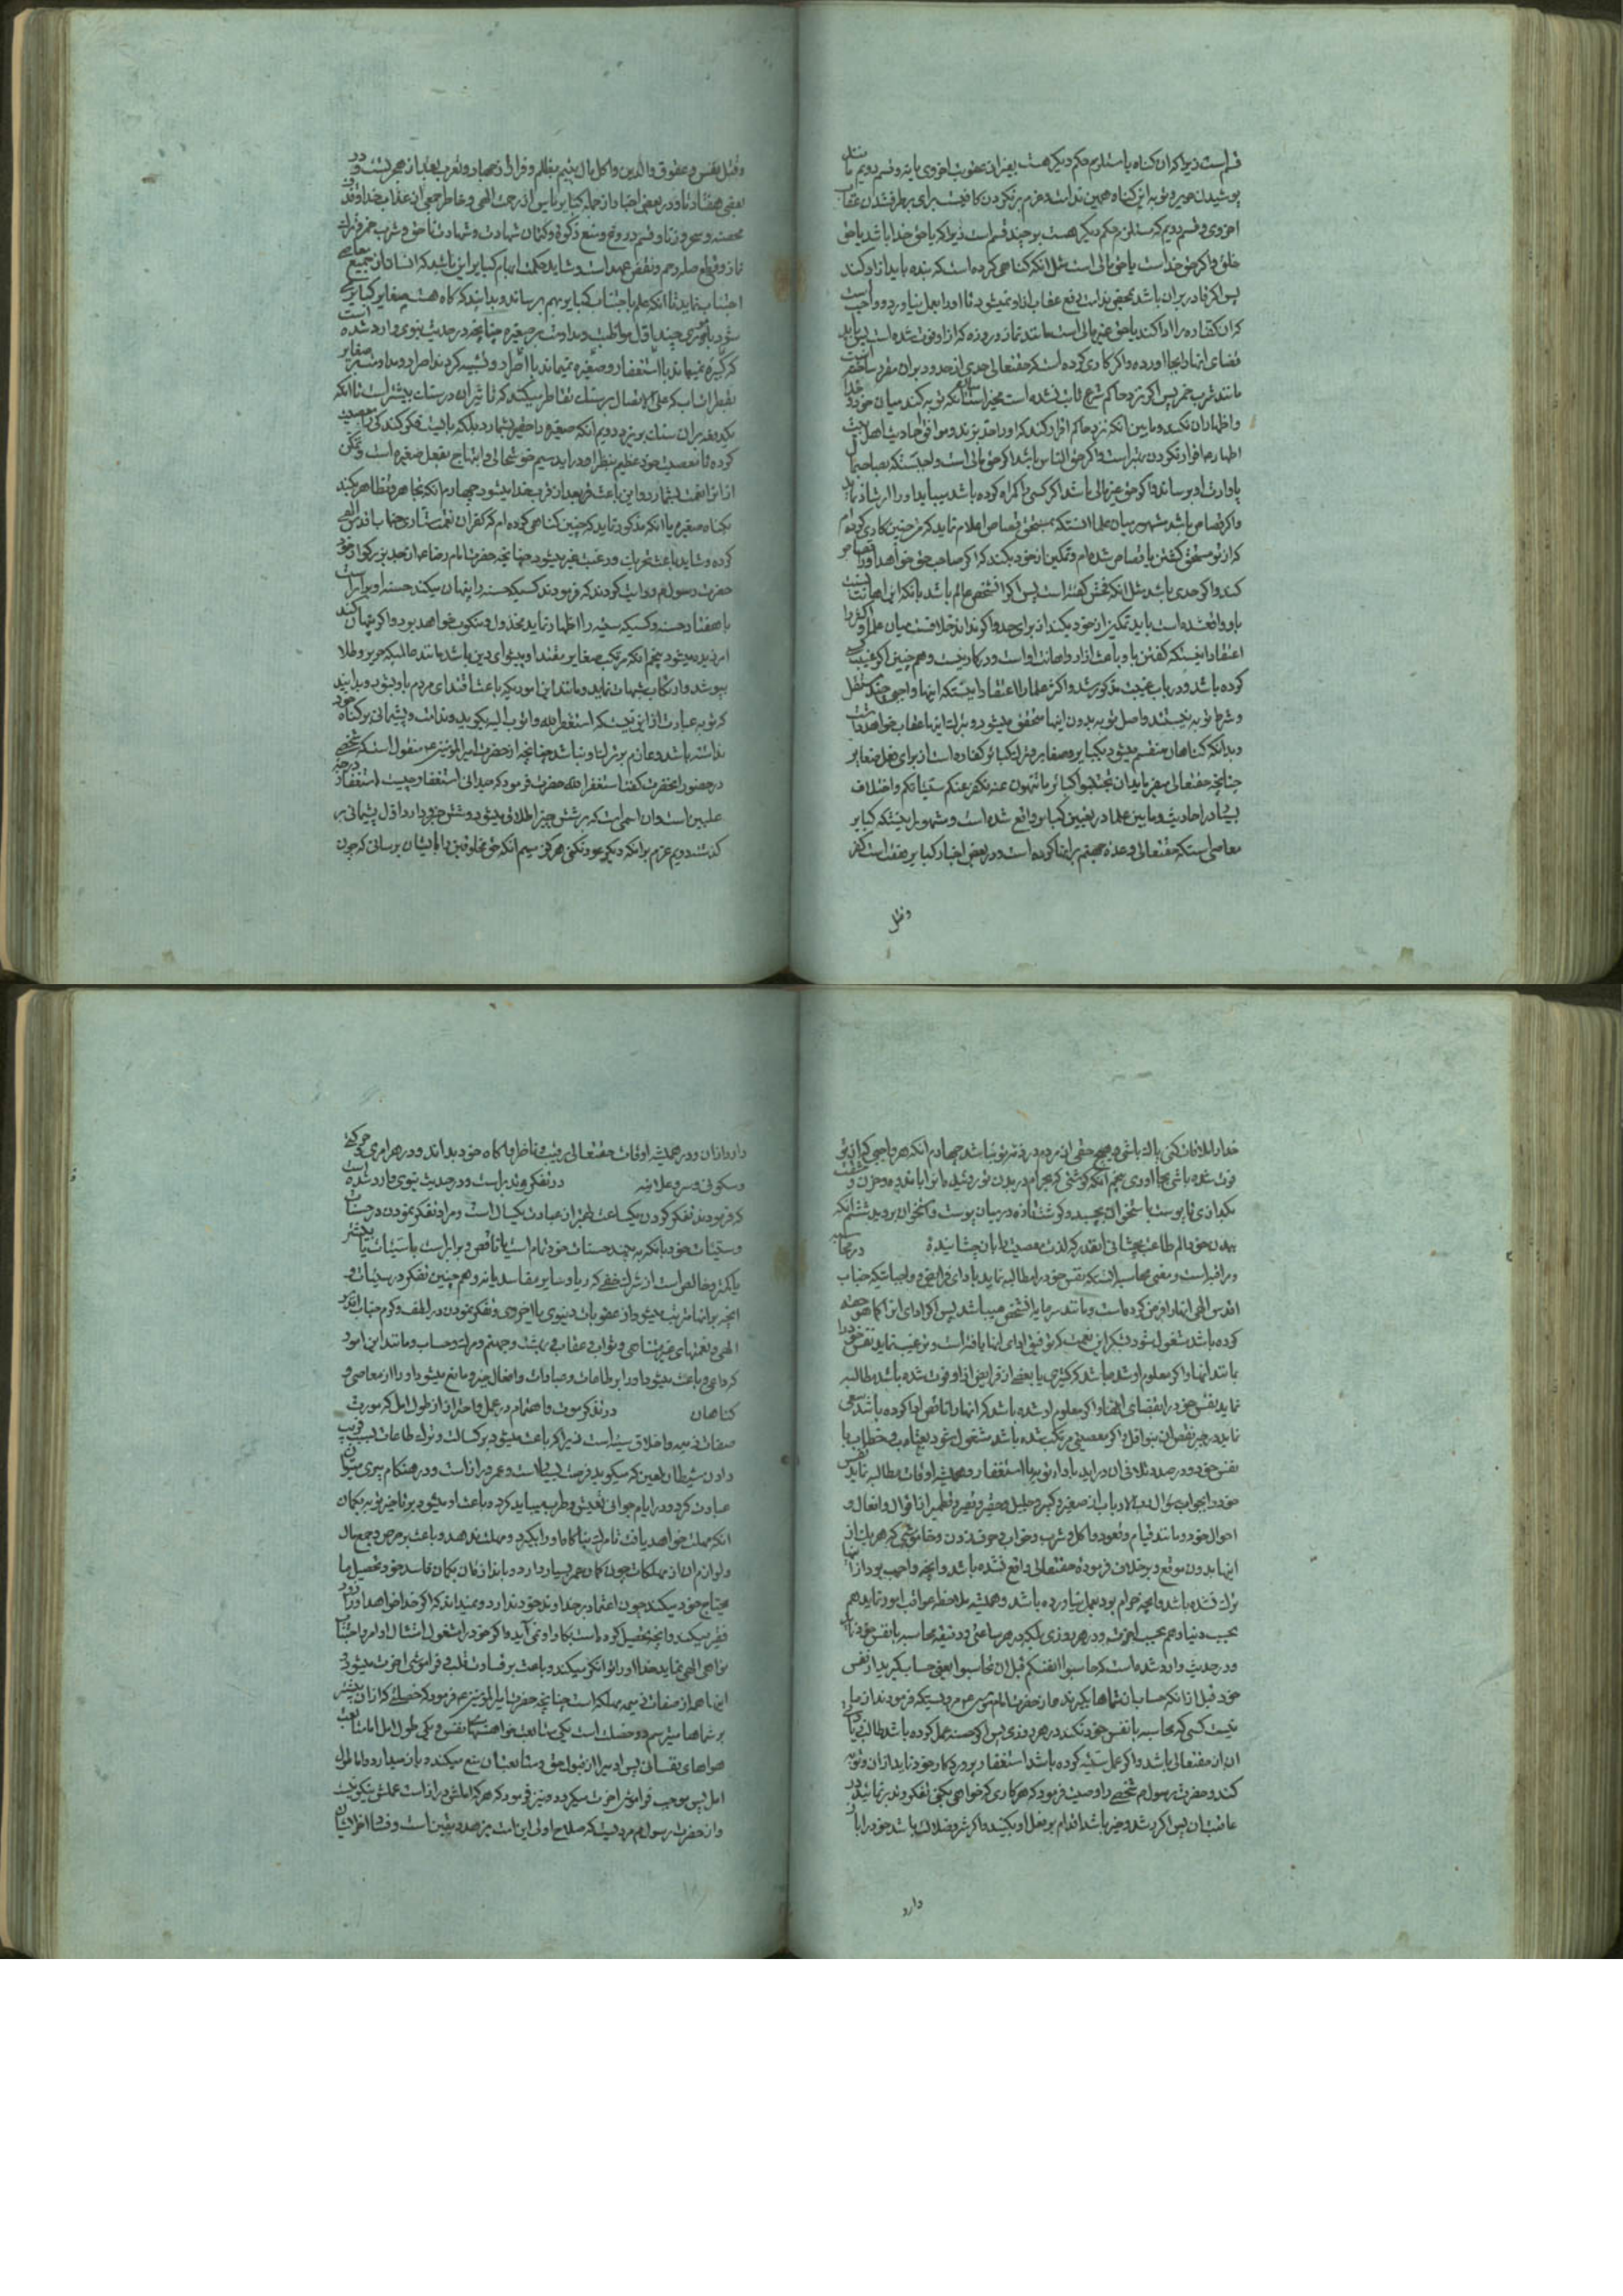 قسم است زیرا که ان کناه یا مستلزم حکم دیکر هست بغیر از عقوبت اخروی یا نه و قسم دویم مثل
پوشیدن حریر و توبه ازین کناه همین ندامت و عزم بر نکردن کافیست برای برطرف شدن عقاب
اخروی و قسم دویم که مستلزم حکم دیکر هست بر چند قسم است زیرا که یا حق خدا باشد یا حق
خلق و اکر حق خداست یا حق مالی است مثل انکه کناهی کرده است که بنده باید ازاد کند
پس اکر قادر بر ان باشد بمحض ندامت رفع عقاب از او نمیشود تا او را بعمل نیاورد و واجب است
که ان کفاره را ادا کند یا حق غیر مالی است مانند نماز و روزه که از او فوت شده است پس باید
قضای انها را بجا اورد و اکر کاری کرده است که حقتعالی حدی از حدود بر ان مقرر ساخته است
مانند شرب خمر پس اکر نزد حاکم شرع ثابت نشده است مخیر است میان انکه توبه کند میان خود و خدا
و اظهار ان نکند و ما بین انکه نزد حاکم اقرار کند که او را حد بزند و موافق احادیث اهل بیت
اظهار و اقرار نکردن بهتر است و اکر حق الناس باشد اکر حق مالی است واجبست که بصاحب مال
یا وارث او برساند و اکر حق غیر مالی باشد اکر کسی را کمراه کرده باشد میباید او را ارشاد نماید
و اکر قصاص باشد مشهور میان علما انست که بمستحق قصاص اعلام نماید که من چنین کاری کرده‌ام
که از تو مستحق کشتن یا قصاص شده‌ام و تمکین از خود بکند که اکر صاحب حق خواهد او را قصاص
کند و اکر حدی باشد مثل انکه فحش کفته است پس اکر ان شخص عالم باشد بانکه این اهانت نسبت
باو واقع شده است باید تمکین از خود بکند از برای حد و اکر نداند خلافست میان علما و اکثر را
اعتقاد اینستکه کفتن باو باعث ازار و اهانت او است و در کار نیست و همچنین اکر غیبت کسی
کرده باشد و در باب غیبت مذکور شد و اکثر علما را اعتقاد اینستکه اینها واجبی چند مستقل
و شرط توبه نیستند و اصل توبه بدون اینها متحقق میشود و بترک اینها عقاب خواهد داشت
و بدانکه کناهان منقسم میشود بکبایر و صغایر و ترک کبائر کفاره است از برای فعل صغایر
چنانچه حقتعالی میفرماید ان تجتنبوا کبائر ما تنهون عنه نکفر عنکم سیئاتکم و اختلاف
بسیار در احادیث و ما بین علما در تعیین کبایر واقع شده است و مشهور اینستکه کبایر
معاصی است که حقتعالی وعده جهنم بر اینها کرده است و در بعض اخبار کبایر هفت است کفر
وقتل
وقتل نفس و عقوق والدین و اکل مال یتیم بظلم و فرار از جهاد و تعرب بعد از هجرتست و در
بعضی هفتاد و در بعضی اخبار از جمله کبایر یاس از رحمت الهی و خاطر جمعی از عذاب خدا و قذف
محصنه و سحر و زنا و قسم دروغ و منع زکوة و کتمان شهادت و شهادت ناحق و شرب خمر و ترک
نماز و قطع صله رحم و نقض عهد است و شاید حکمت ابهام کبایر این باشد که انسان از جمیع معاصی
اجتناب نماید تا انکه علم باجتناب کبایر بهم رساند و بدانند که کاه هست صغایر کبایر می
شود بچیزی چند اول مواظبت و مداومت بر صغیره چنانچه در حدیث نبوی وارد شده است
که کبیره نمیماند با استغفار و صغیره نمیماند با اصرار و تشبیه کردند اصرار و مداومت بر صغایر
بقطرات اب که علی الاتصال بر سنک تقاطر میکند که تاثیر ان در سنک بیشتر است تا انکه
یکدفعه بر ان سنک بریزد دویم انکه صغیره را حقیر شمارد بلکه بایست فکر کند کی را معصیت
کرده تا معصیت خود عظیم بنظر او دراید سیم خوشحالی و ابتهاج بفعل صغیره است و تمکن
از انرا نعمت شمارد و این باعث بعد از قرب خدا میشود چهارم انکه تجاهر و تظاهر بکند
بکناه صغیره یا انکه مذکور نماید که چنین کناهی کرده‌ام که کفران نعمت ستاری جناب اقدس الهی
کرده و شاید باعث تحریک و رغبت غیر میشود چنانچه حضرت امام رضا ع از جد بزرکوار خود
حضرت رسول ص روایت کردند که فرمودند کسیکه حسنه را پنهان میکند حسنه او برابر است
با هفتاد حسنه و کسیکه سیئه را اظهار نماید مخذول و منکوب خواهد بود و اکر پنهان کند
امرزیده میشود پنجم انکه مرتکب صغایر مقتدا و پیشوای دین باشد مانند عالمیکه حریر و طلا
بپوشد و ارتکاب شبهات نماید و مانند این امور که باعث اقتدای مردم باو میشود و بدانید
که توبه عبارت از این نیستکه استغفر الله و اتوب الیه بکوید و ندامت و پشیمانی بر کناه خود
نداشته باشد و عازم بر ترک ان نباشد چنانچه از حضرت امیر المؤمنین ع منقول است که شخصی
در حضور انحضرت کفت استغفر الله حضرت فرمود که میدانی استغفار چیست استغفار درجه
علیین است و ان اسمی است که بر شش چیز اطلاق میشود و شش جزو دارد اول پشیمانی بر
کذشته دویم عزم بر انکه دیکر عود نکنی هرکز سیم انکه حق مخلوقین را بایشان برسانی که چون
خدا را ملاقات کنی پاک باشی و هیچ حقی از مردم در ذمه تو نباشد چهارم انکه هر واجبی که از تو
فوت شده باشی بجا اوری پنجم انکه کوشتی که بحرام در بدن تو روئیده انرا باندوه و حزن و مشقت
بکدازی تا پوست باستخوان بچسبد و کوشت تازه در میان پوست و استخوان بروید ششم انکه
ببدن خود الم طاعت بچشانی انقدر که لذت معصیت را بان چشانیده در محاسبه
و مراقبه است و معنی محاسبه انستکه نفس خود را مطالبه نماید بادای فرایض و واجباتیکه جناب
اقدس الهی انها را فرض کرده است و مانند سرمایه ان شخص میباشد پس اکر ادای انرا کما هو حقه
کرده باشد مشغول شود بشکر این نعمت که توفیق ادای انها یافته است و ترغیب نماید نفس خود را
مانند انها و اکر معلوم او شده باشد که کمتری یا بعضی از فرایض از او فوت شده باشد مطالبه
نماید نفس خود را بقضای انها و اکر معلوم او شده باشد که انها را ناقص ادا کرده باشد سعی
نماید در جبر نقص ان بنوافل و اکر معصیتی مرتکب شده باشد مشغول شود بعتاب و خطاب با
نفس خود و در صدد تلافی ان دراید با دار توبه یا استغفار و همیشه اوقات مطالبه نماید نفس
خود را بجواب سؤال رب الارباب از صغیر و کبیر و جلیل و حقیر و نقیر و قطمیر از اقوال و افعال و
احوال خود و مانند قیام و قعود و اکل و شرب و خواب و حرف زدن و خاموشی که هر یک از
اینها بدون موقع و برخلاف فرموده حقتعالی واقع نشده باشد و انچه واجب بود از انها
ترک نشده باشد و انچه حرام بود بعمل نیاورده باشد و همیشه ملاحظه عواقب امور نماید هم
بحسب دنیا و هم بحسب اخرت و در هر روزی بلکه در هر ساعتی و دقیقه محاسبه با نفس خود نماید
و در حدیث وارد شده است که حاسبوا انفسکم قبل ان تحاسبوا یعنی حساب کیرید از نفس
خود قبل از انکه حساب از شماها بکیرند و از حضرت امام موسی ع مرویستکه فرمودند از ما
نیست کسی که محاسبه با نفس خود نکند در هر روزی پس اکر حسنه عمل کرده باشد طالب زیادتی
ان از حقتعالی باشد و اکر عمل سیئه کرده باشد استغفار پروردکار خود نماید از ان و توبه
کند و حضرت رسول ص شخصی را وصیت فرمود که هر کاری که خواهی بکنی تفکر و تدبر نمائید در
عاقبت ان پس اکر رشد و خیر باشد اقدام بر فعل او بکنید و اکر شر و ضلالت باشد خود را باز
دارد
دارد از ان و در همیشه اوقات حقتعالی را رقیب و ناظر و اکاه خود بداند و در هر امری حرکتی
و سکونی و سر و علانیه در تفکر و تدبر است و در حدیث نبوی وارد شده است
که فرمودند تفکر کردن یکساعت بهتر از عبادت یکسال است و مراد تفکر نمودن در حسنات
و سیئات خود بانکه به بیند حسنات خود تمام است یا ناقص و برابر است با سیئات یا بیشتر
یا کمتر و خالص است از شرک خفی که ریا و سایر مفاسد یا نه و همچنین تفکر در سیئات و
انچه بر انها مترتب میشود از عقوبات دنیوی یا اخروی و تفکر نمودن در لطف و کرم جناب اقدس
الهی و نعمتهای غیر متناهی و ثواب و عقاب و بهشت و جهنم و مرک و حساب و مانند این امور
که داعی و باعث میشود او را بر طاعات و عبادات و افعال خیر و مانع میشود او را از معاصی و
کناهان در تذکر موت و اهتمام در عمل و احتراز از طول امل که مورث
صفات ذمیمه و اخلاق سیئه است زیرا که باعث میشود بر کسالت و ترک طاعات بسبب فریب
دادن شیطان لعین که میکوید فرصت بسیار است و عمر دراز است و در هنکام پیری میتوان
عبادت کرد و در ایام جوانی بعیش و طرب میباید کرد و باعث او میشود بر تاخیر توبه بکمان
انکه مهلت خواهد یافت تا مرک ناکاه او را بکیرد و مهلت ندهد و باعث بر حرص و جمع مال
و لوازم ان از مهلکات چون کمان عمر بسیار دارد و باندازه ان بکمان فاسد خود تحصیل ما
یحتاج خود میکند چون اعتماد بر خداوند خود ندارد و نمیداند که اکر خدا خواهد او را زود
فقیر میکند و انچه تحصیل کرده است بکار او نمی آید و اکر خود را مشغول امتثال اوامر و اجتناب
نواهی الهی نماید خدا او را توانکر میکند و باعث بر قساوت قلب و فراموشی اخرت میشود و
اینها همه از صفات ذمیمه مهلکه است چنانچه حضرت امیر المؤمنین ع فرمود که خصلتی که از ان بیشتر
بر شماها میترسم دو خصلت است یکی متابعت خواهشهای نفس و یکی طول امل اما متابعت
هواهای نفسانی پس ادمی را از قبول حق و متابعت ان منع میکند و باز میدارد و اما طول
امل پس موجب فراموشی اخرت میکردد و نیز فرمود که هر که املش دراز است عملش نیکو نیست
و از حضرت رسول ص مرویست که صلاح اولی این امت بزهد و یقین است و فساد اخر ایشان